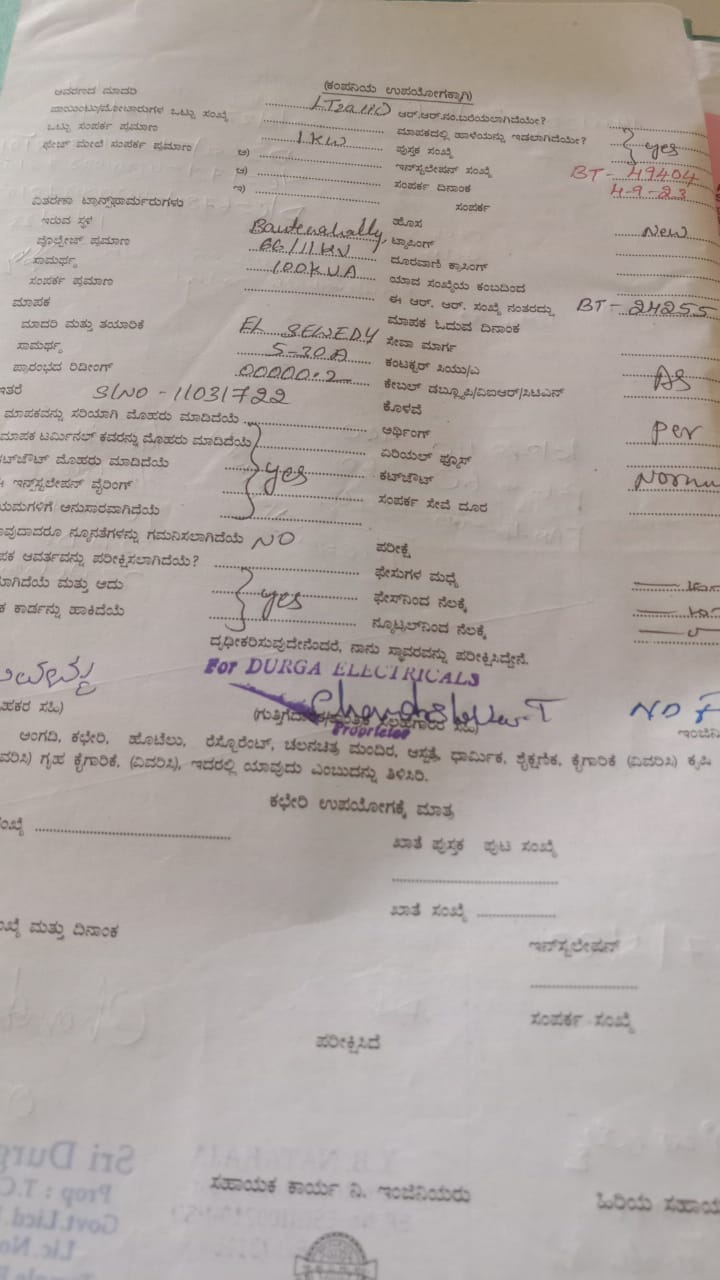 (ಕಂಪನಿಯ ಉಪಯೋಗಕ್ಕಾಗಿ)
ಆವರಣದ ಮಾದರಿ LT2aiiD ಆರ್.ಆರ್.ನಂ.ಬರೆಯಲಾಗಿದೆಯೇ?
ಪಾಯಿಂಟು/ಮೋಟಾರುಗಳ ಒಟ್ಟು ಸಂಖ್ಯೆ ಮಾಪಕದಲ್ಲಿ ಹಾಳೆಯನ್ನು ಇಡಲಾಗಿದೆಯೇ? yes
ಒಟ್ಟು ಸಂಪರ್ಕ ಪ್ರಮಾಣ 1 KW ಪುಸ್ತಕ ಸಂಖ್ಯೆ
ಫೇಜ್ ಮೇಲೆ ಸಂಪರ್ಕ ಪ್ರಮಾಣ ಅ) ಇನ್‌ಸ್ಟಲೇಷನ್ ಸಂಖ್ಯೆ BT- 49404
ಆ) ಸಂಪರ್ಕ ದಿನಾಂಕ 4-9-23
ಇ) ಸಂಪರ್ಕ
ವಿತರಣಾ ಟ್ರಾನ್ಸ್‌ಫಾರ್ಮರುಗಳು ಹೊಸ New
ಇರುವ ಸ್ಥಳ Bautenahally, ಟ್ಯಾಪಿಂಗ್
ವೊಲ್ಟೇಜ್ ಪ್ರಮಾಣ 66/11 KV ದೂರವಾಣಿ ಕ್ರಾಸಿಂಗ್
ಸಾಮರ್ಥ್ಯ 100KVA ಯಾವ ಸಂಖ್ಯೆಯ ಕಂಬದಿಂದ
ಸಂಪರ್ಕ ಪ್ರಮಾಣ ಈ ಆರ್. ಆರ್. ಸಂಖ್ಯೆ ನಂತರದ್ದು BT- 24255
ಮಾಪಕ ಮಾಪಕ ಓದುವ ದಿನಾಂಕ
ಮಾದರಿ ಮತ್ತು ತಯಾರಿಕೆ EL SEWEDY ಸೇವಾ ಮಾರ್ಗ
ಸಾಮರ್ಥ್ಯ 5-30A ಕಂಟಕ್ಟರ್ ಸಿಯು/ಎ
ಪ್ರಾರಂಭದ ರಿಡೀಂಗ್ 00000.2 ಕೇಬಲ್ ಡಬ್ಲ್ಯೂಪಿ/ವಿಐಆರ್/ಸಿಟಿಎಸ್ AS
ಇತರೆ S/NO - 11031722 ಕೊಳವೆ
ಮಾಪಕವನ್ನು ಸರಿಯಾಗಿ ಮೊಹರು ಮಾಡಿದೆಯೆ ಅರ್ಥಿಂಗ್ Per
ಮಾಪಕ ಟರ್ಮಿನಲ್ ಕವರನ್ನು ಮೊಹರು ಮಾಡಿದೆಯೆ ಏರಿಯಲ್ ಫ್ಯೂಸ್
ಕಟ್‌ಔಟ್ ಮೊಹರು ಮಾಡಿದೆಯೆ yes ಕಟ್‌ಔಟ್
ಇನ್‌ಸ್ಟಲೇಷನ್ ವೈರಿಂಗ್ ಸಂಪರ್ಕ ಸೇವೆ ದೂರ
ಅನುಸಾರವಾಗಿದೆಯೆ
ನ್ಯೂನತೆಗಳನ್ನು ಗಮನಿಸಲಾಗಿದೆಯೆ NO ಪರೀಕ್ಷೆ
ಆವರ್ತವನ್ನು ಪರೀಕ್ಷಿಸಲಾಗಿದೆಯೆ? ಫೇಸುಗಳ ಮಧ್ಯೆ
ಮತ್ತು ಅದು yes ಫೇಸ್‌ನಿಂದ ನೆಲಕ್ಕೆ
ಕಾರ್ಡನ್ನು ಹಾಕಿದೆಯೆ ನ್ಯೂಟ್ರಲ್‌ನಿಂದ ನೆಲಕ್ಕೆ
ದೃಢೀಕರಿಸುವುದೇನೆಂದರೆ, ನಾನು ಸ್ಥಾವರವನ್ನು ಪರೀಕ್ಷಿಸಿದ್ದೇನೆ.
For DURGA ELECTRICALS
Proprietor
ಅಂಗಡಿ, ಕಛೇರಿ, ಹೊಟೆಲು, ರೆಸ್ಟೊರೆಂಟ್, ಚಲನಚಿತ್ರ ಮಂದಿರ, ಆಸ್ಪತ್ರೆ, ಧಾರ್ಮಿಕ, ಶೈಕ್ಷಣಿಕ, ಕೈಗಾರಿಕೆ (ವಿವರಿಸಿ) ಕೃಷಿ
ವಿವರಿಸಿ) ಗೃಹ ಕೈಗಾರಿಕೆ, (ವಿವರಿಸಿ), ಇದರಲ್ಲಿ ಯಾವುದು ಎಂಬುದನ್ನು ತಿಳಿಸಿರಿ.
ಕಛೇರಿ ಉಪಯೋಗಕ್ಕೆ ಮಾತ್ರ
ಖಾತೆ ಪುಸ್ತಕ ಪುಟ ಸಂಖ್ಯೆ
ಖಾತೆ ಸಂಖ್ಯೆ
ಮತ್ತು ದಿನಾಂಕ
ಇನ್‌ಸ್ಟಲೇಷನ್
ಸಂಪರ್ಕ ಸಂಖ್ಯೆ
ಪರೀಕ್ಷಿಸಿದೆ
ಸಹಾಯಕ ಕಾರ್ಯ ನಿ. ಇಂಜಿನಿಯರು ಹಿರಿಯ